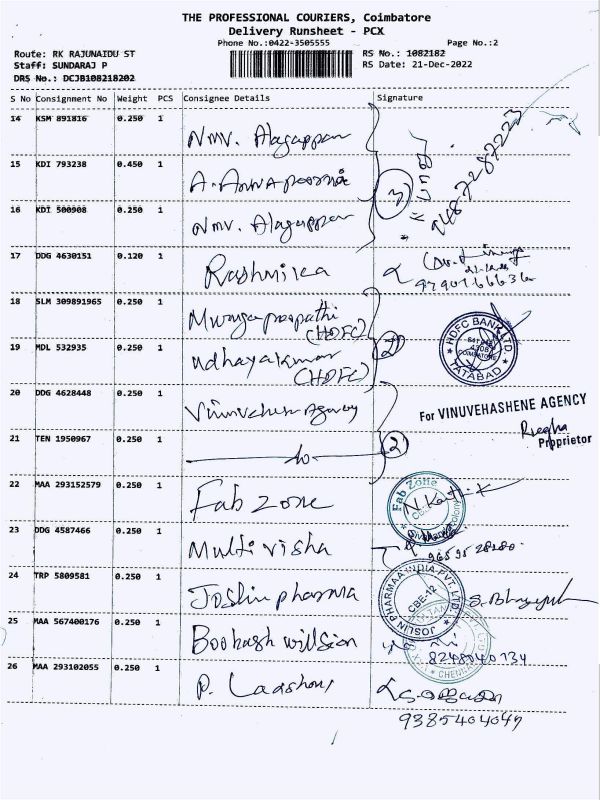 THE PROFESSIONAL COURIERS, Coimbatore
Delivery Runsheet - PCX
Phone No.:0422-3505555 Page No.:2
Route: RK RAJUNAIDU ST RS No.: 1082182
Staff: SUNDARAJ P RS Date: 21-Dec-2022
DRS No.: DCJB108218202
S No Consignment No Weight PCS Consignee Details Signature
14 KSM 891816 0.250 1 Nmv. Alagappan
15 KDI 793238 0.450 1 A. Annapoorna
16 KDI 500908 0.250 1 Nmv. Alagappan
3
9487287223
17 DDG 4630151 0.120 1 Rashmika
18 SLM 309891965 0.250 1 Murugapoopathi
(HDFC)
19 MDL 532935 0.250 1 Udhayakumar
(HDFC)
2
HDFC BANK LTD.
COIMBATORE
TATABAD
20 DDG 4628448 0.250 1 Vinuvehashene Agency
For VINUVEHASHENE AGENCY
Proprietor
21 TEN 1950967 0.250 1
2
22 MAA 293152579 0.250 1 Fab Zone
Fab Zone
N. Karthik
23 DDG 4587466 0.250 1 Multi visha
24 TRP 5809581 0.250 1 Joslin pharma
JOSLIN PHARMAA INDIA PVT. LTD.
CBE-12
25 MAA 567400176 0.250 1
8248040734
26 MAA 293102055 0.250 1
9385404047